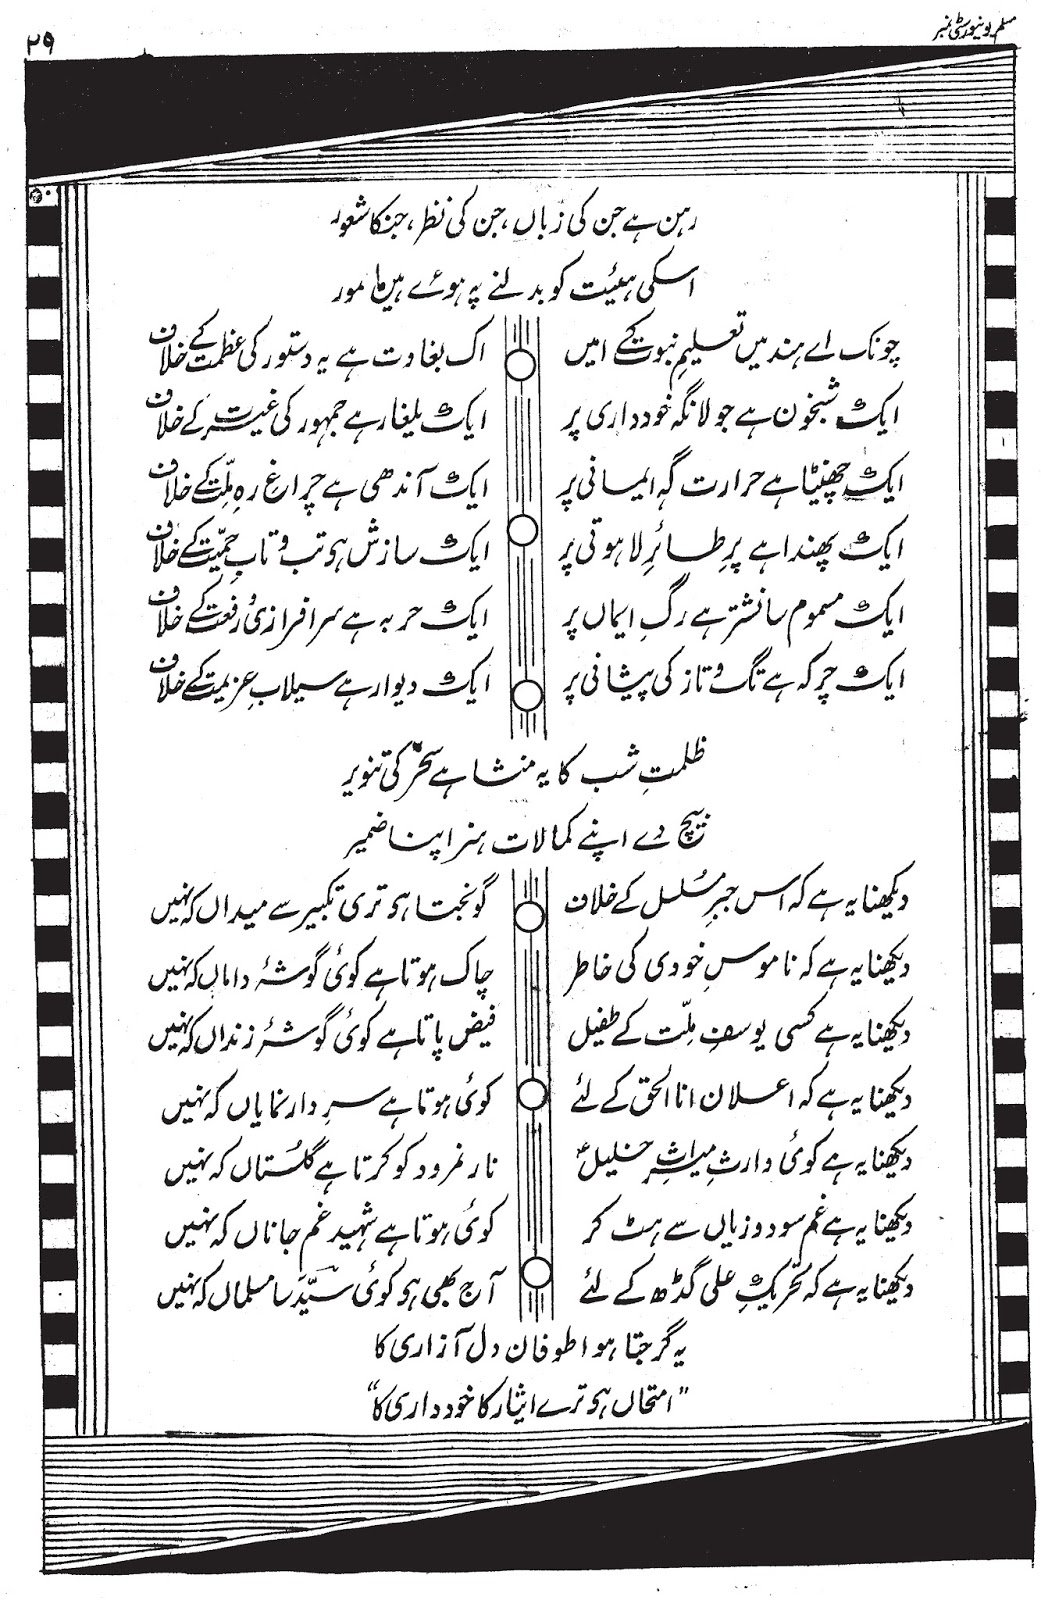 مسلم یونیورسٹی نمبر
۲۹
رہن ہے جن کی زباں، جن کی نظر، جنکا شعور
اسکی ہیئت کو بدلنے پہ ہوئے ہیں مامور
چونک اے ہند میں تعلیمِ نبوت کے امیں
اک بغاوت ہے یہ دستور کی عظمت کے خلاف
ایک شبخون ہے جولانگہ خودداری پر
ایک یلغار ہے جمہور کی غیرت کے خلاف
ایک چھینٹا ہے حرارت گہِ ایمانی پر
ایک آندھی ہے چراغِ رہِ ملّت کے خلاف
ایک پھندا ہے پرِ طائرِ لاہوتی پر
ایک سازش ہو تب و تابِ حمیّت کے خلاف
ایک مسموم سا نشتر ہے رگِ ایماں پر
ایک حربہ ہے سرافرازیٔ رفعت کے خلاف
ایک چرکہ ہے تگ و تاز کی پیشانی پر
ایک دیوار ہے سیلابِ عزیمت کے خلاف
ظلمتِ شب کا یہ منشا ہے سحر کی تنویر
بیچ دے اپنے کمالات ہنر اپنا ضمیر
دیکھنا یہ ہے کہ اس جبرِ مسلسل کے خلاف
گونجتا ہو تری تکبیر سے میداں کہ نہیں
دیکھنا یہ ہے کہ ناموسِ خودی کی خاطر
چاک ہوتا ہے کوئی گوشۂ داماں کہ نہیں
دیکھنا یہ ہے کسی یوسفِ ملّت کے طفیل
فیض پاتا ہے کوئی گوشۂ زنداں کہ نہیں
دیکھنا یہ ہے کہ اعلان انا الحق کے لئے
کوئی ہوتا ہے سرِ دار نمایاں کہ نہیں
دیکھنا یہ ہے کوئی وارثِ میراثِ خلیلؑ
نار نمرود کو کرتا ہے گلستاں کہ نہیں
دیکھنا یہ ہے غمِ سود و زیاں سے ہٹ کر
کوئی ہوتا ہے شہید غمِ جاناں کہ نہیں
دیکھنا یہ ہے کہ تحریکِ علی گڈھ کے لئے
آج بھی ہو کوئی سیّد سا مسلماں کہ نہیں
یہ گرجتا ہوا طوفان دل آزاری کا
"امتحاں ہو ترے ایثار کا خودداری کا"